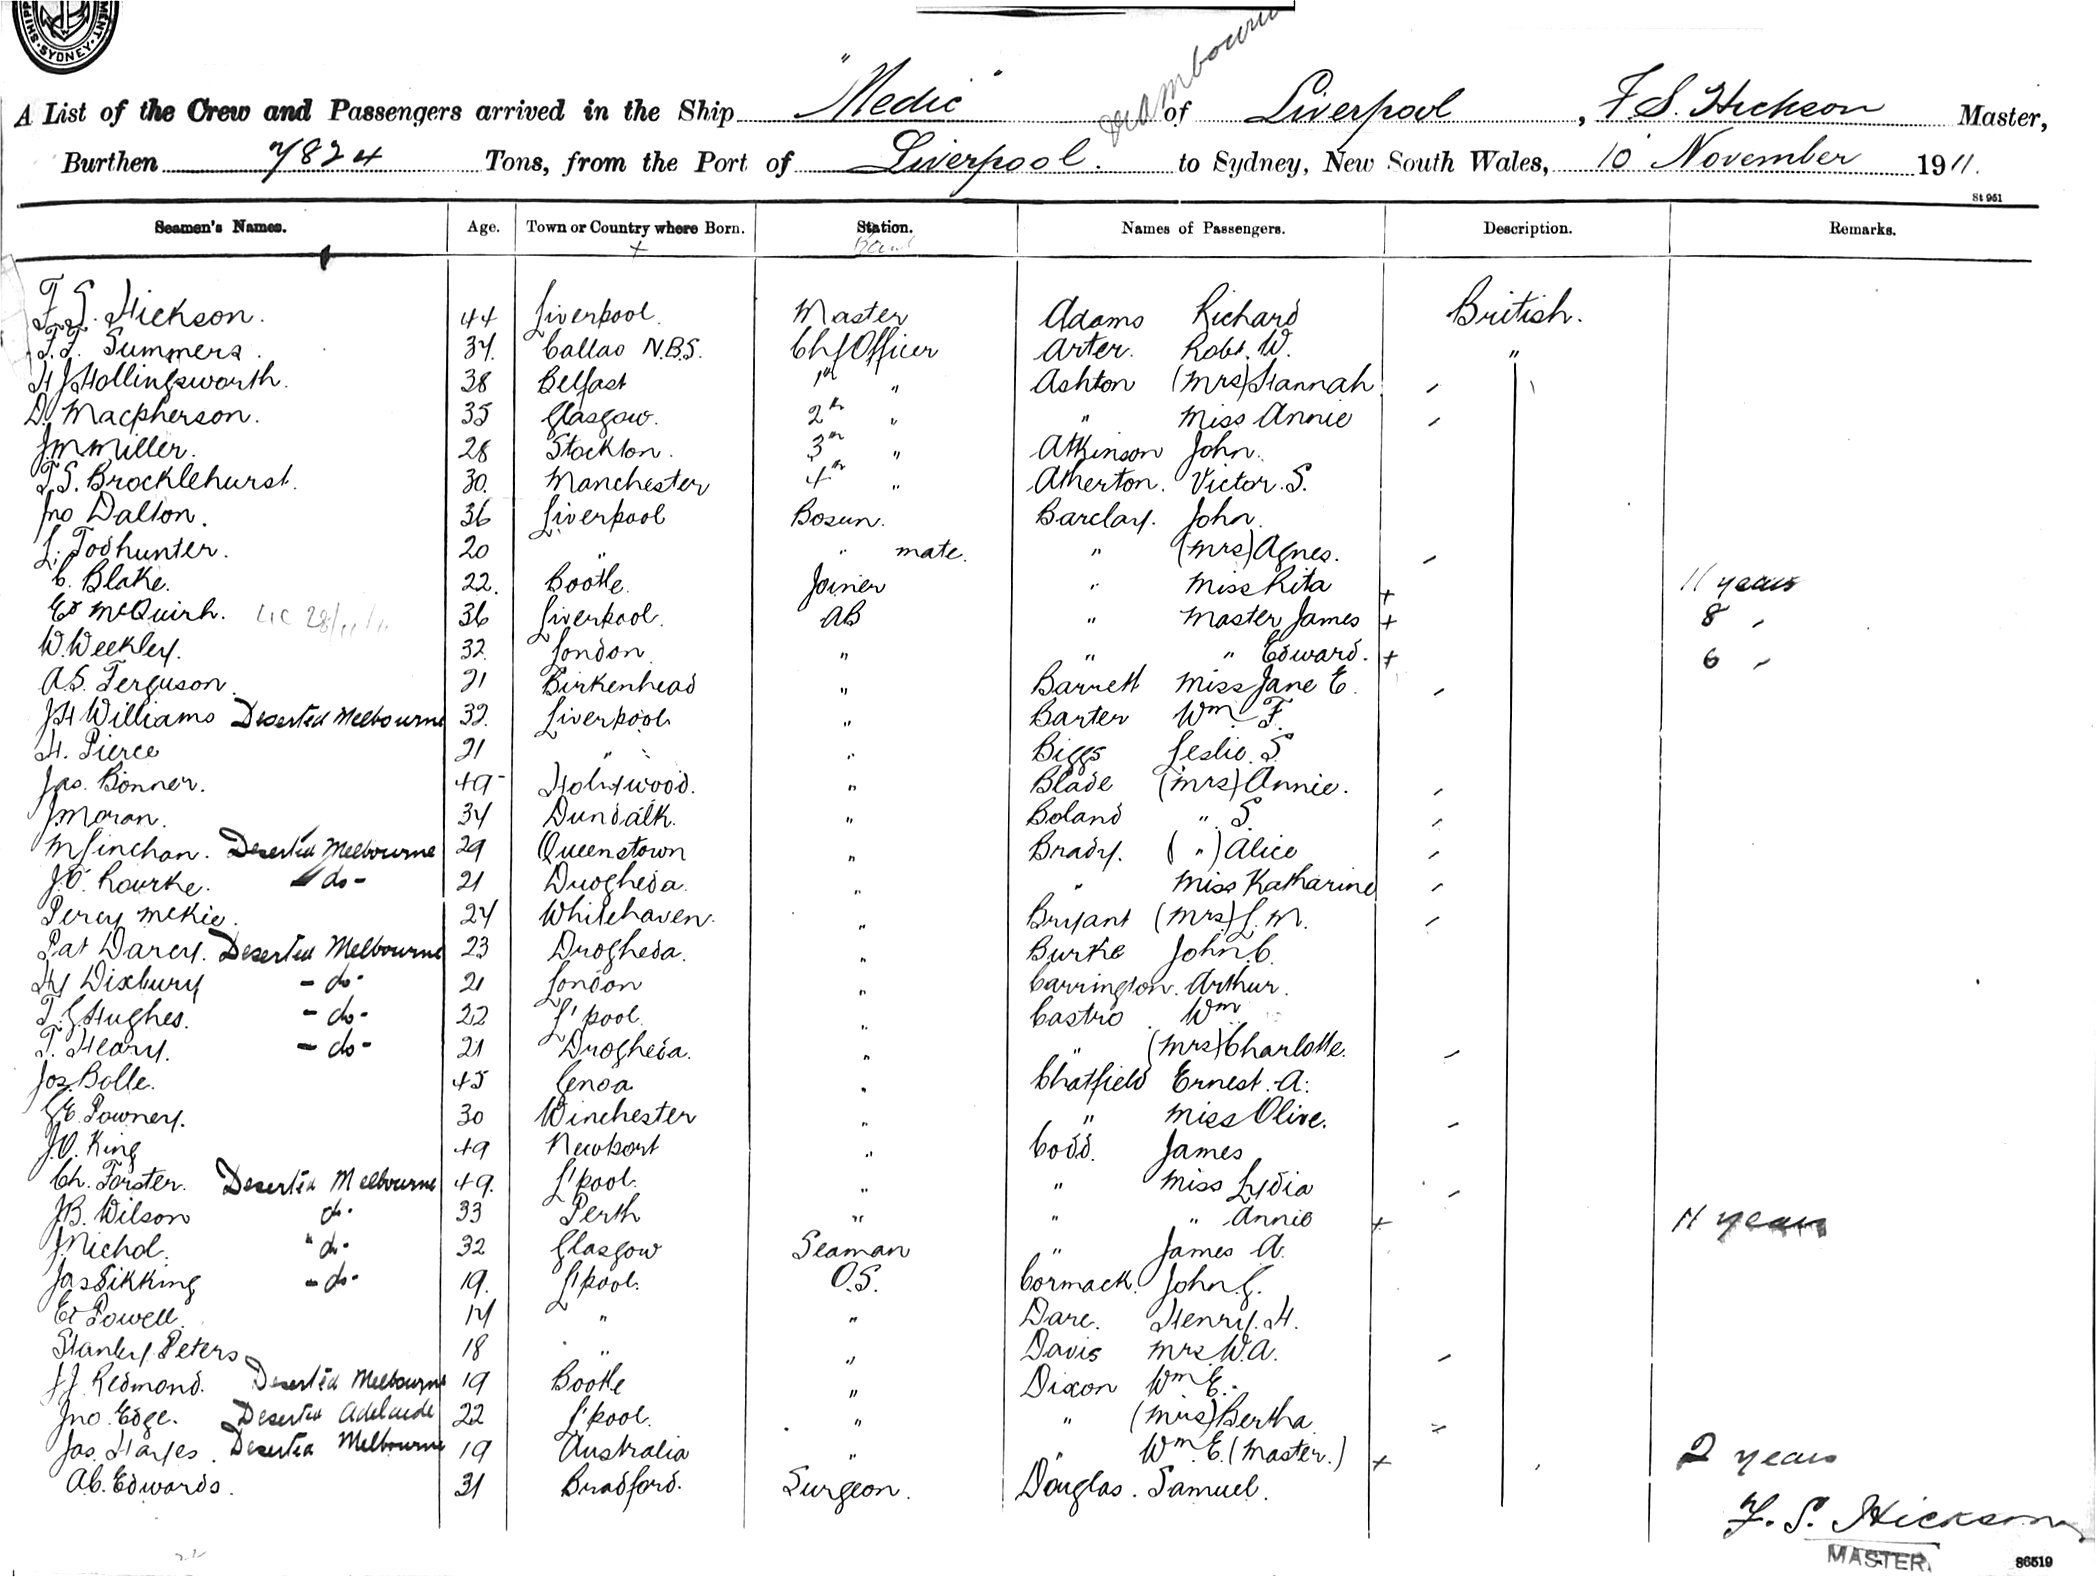 SHIPP MENT. SYDNEY.
A List of the Crew and Passengers arrived in the Ship "Medic" of Liverpool, F S. Hickson Master,
Burthen 7824 Tons, from the Port of Liverpool. to Sydney, New South Wales, 10 November 1911.
St 951
Seamen's Names. Age. Town or Country where Born. Station. Names of Passengers. Description. Remarks.
F. S. Hickson. 44 Liverpool. Master Adams Richard British.
F. T. Summers. 34 Callao N.B.S. Chf Officer Arter. Robt. W. "
H J Hollingsworth. 38 Belfast 1st " Ashton (Mrs) Hannah
D. Macpherson. 35 Glasgow. 2nd " " Miss Annie
J M Miller. 28 Stockton. 3rd " Atkinson John.
T. S. Brocklehurst. 30. Manchester 4th " Atherton. Victor. S.
Jno Dalton. 36 Liverpool Bosun. Barclay. John.
L. Todhunter. 20 " " mate. " (Mrs) Agnes.
C. Blake. 22. Bootle. Joiner " Miss Rita + 11 years
Ed McQuirk. 28/11/11 36 Liverpool. AB " Master James + 8 "
W. Weekley. 32. London " " " Edward. + 6 "
A. S. Ferguson. 21 Birkenhead " Barrett Miss Jane E.
J H Williams Deserted Melbourne 32. Liverpool " Barter Wm F.
H. Pierce 21 " " Biggs Leslie. S
Jas. Bonner. 49 Holywood. " Blade (Mrs) Annie.
J Moran. 34 Dundalk. " Boland " S.
M Linehan. Deserted Melbourne 29 Queenstown " Brady. ( " ) Alice
J. O'Rourke. - do - 21 Drogheda. " " Miss Katharine
Percy McKie. 24 Whitehaven. " Bryant (Mrs) L. M.
Pat Darcy. Deserted Melbourne 23 Drogheda. " Burke John. C.
Hy Dixbury - do - 21 London " Carrington. Arthur.
T. G Hughes. - do - 22 L'pool. " Castro Wm
T. Heary. - do - 21 Drogheda. " " (Mrs) Charlotte.
Jos. Bolle. 45 Genoa " Chatfield Ernest. A.
G E. Powney. 30 Winchester " " Miss Olive.
J. O. King 49 Newport " Codd. James
Ch. Forster. Deserted Melbourne 49. L'pool. " " Miss Lydia
J B. Wilson do. 33 Perth " " " Annie + 11 years
J. Nichol. " do - 32 Glasgow Seaman " James A.
Jas Sikking - do - 19. L'pool. O.S. Cormack. John. G.
Ed Powell. 17 " " Dare. Henry. H.
Stanley Peters 18 " " Davis Mrs. W. A.
J J. Redmond. Deserted Melbourne 19 Bootle " Dixon Wm E.
Jno. Edge. Deserted Adelaide 22 L'pool. " " (Mrs) Bertha
Jas. Hayes. Deserted Melbourne 19 Australia " " Wm E. (Master.) + 2 years
A. C. Edwards. 31 Bradford. Surgeon. Douglas. Samuel.
F. S. Hickson
MASTER.
86519